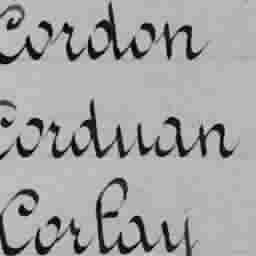 Cordon
Corduan
Cortay